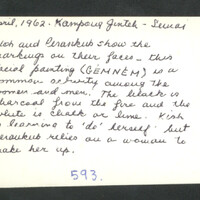 April, 1962. Kampong Jinteh - Simas
and Perankub show the
markings on their faces - this
facial painting (GENNEM) is a
common activity among the
women and men. The black is
charcoal from the fire and the
white is chalk or lime. Kish
is learning to 'do' herself but
Perankub relies on a woman to
make her up.
593.